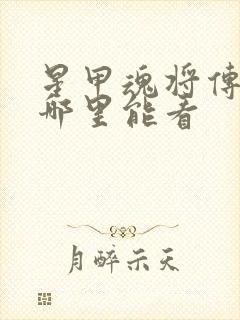 星甲魂将传
哪里能看
月醉示天